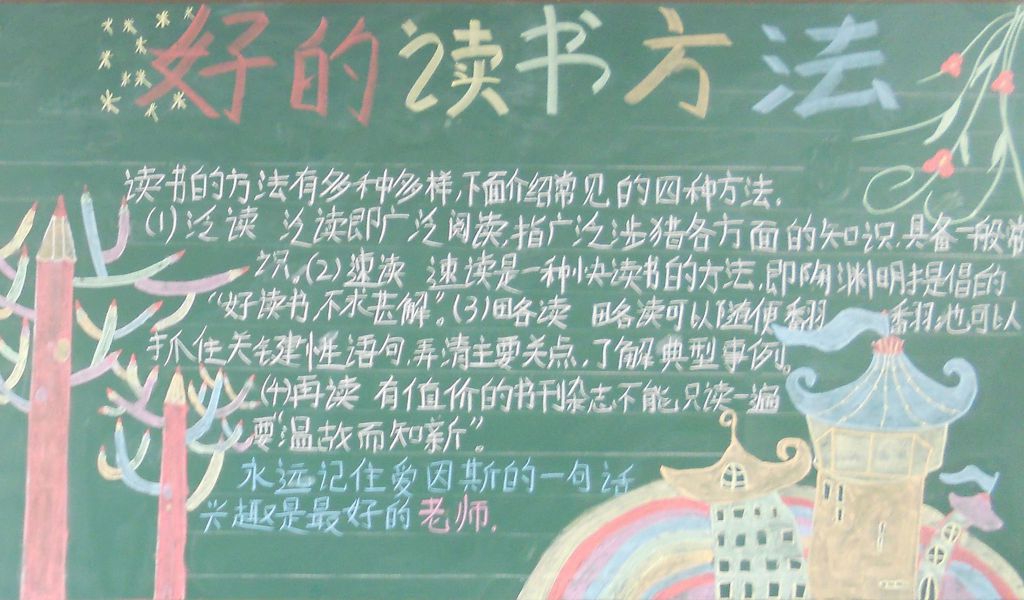 好的读书方法
读书的方法有多种多样,下面介绍常见的四种方法.
(1)泛读 泛读即广泛阅读,指广泛涉猎各方面的知识,具备一般常
识。(2)速读 速读是一种快读书的方法,即陶渊明提倡的
“好读书,不求甚解”。(3)略读 略读可以随便翻 翻,也可以
抓住关键性语句,弄清主要关点,了解典型事例。
(4)再读 有价值的书刊杂志不能只读一遍
要“温故而知新”。
永远记住爱因斯的一句话
兴趣是最好的老师.